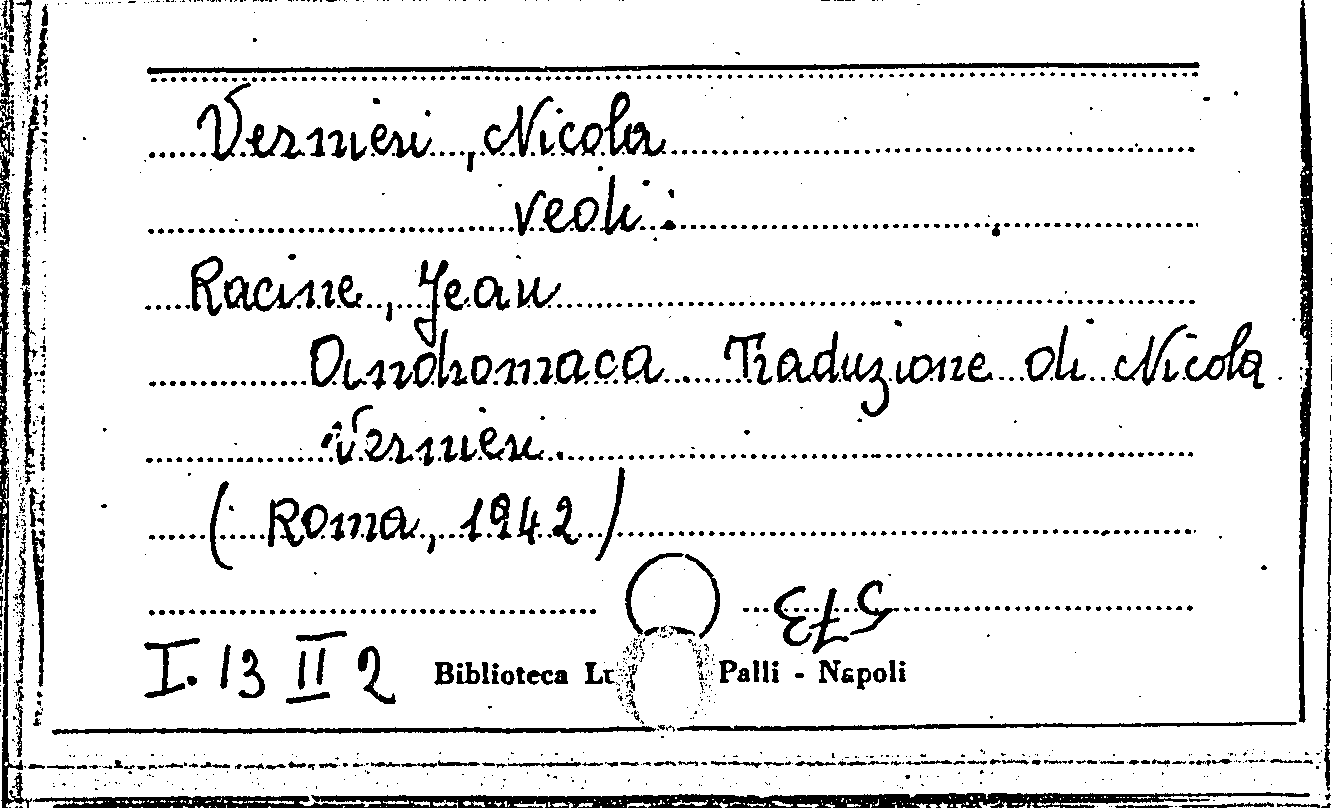 Vernieri, Nicola
vedi:
Racine, Jean
Andromaca. Traduzione di Nicola
Vernieri.
(Roma, 1942)
I. 13 II 2
Biblioteca Lu Palli - Napoli